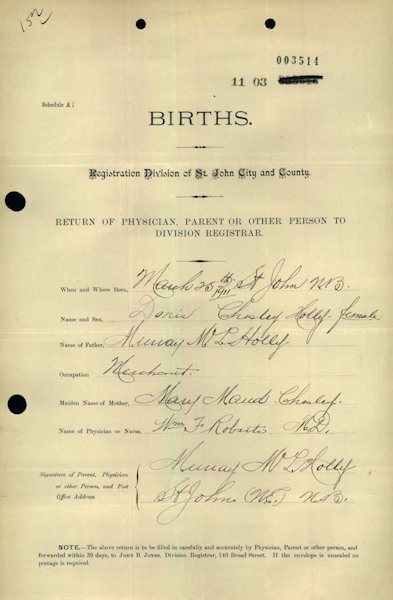 152
003514
11 03
Schedule A 1
BIRTHS.
Registration Division of St. John City and County.
RETURN OF PHYSICIAN, PARENT OR OTHER PERSON TO
DIVISION REGISTRAR.
When and Where Born, March 25th 1911 St John N.B.
Name and Sex, Doris Chesley Holly female
Name of Father, Murray McL Holly
Occupation Merchant.
Maiden Name of Mother, Mary Maud Chesley.
Name of Physician or Nurse, Wm. F Roberts M.D.
Signature of Parent, Physician
or other Person, and Post
Office Address.
Murray McL Holly
St John (W.E.) N.B.
NOTE.—The above return is to be filled in carefully and accurately by Physician, Parent or other person, and
forwarded within 30 days, to JOHN B. JONES, Division Registrar, 140 Broad Street. If the envelope is unsealed no
postage is required.